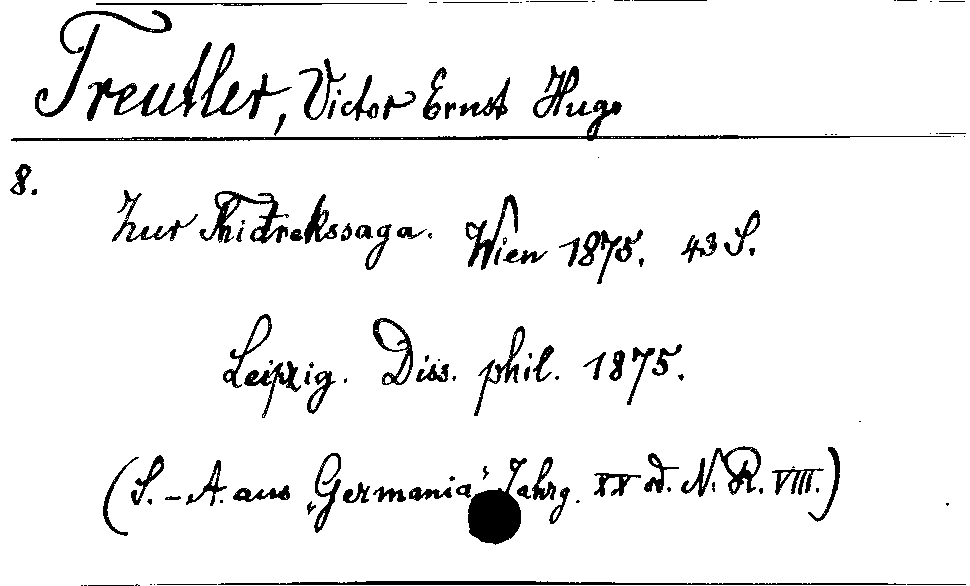 Treutler, Victor Ernst Hugo
8.
Zur Thidrekssaga. Wien 1875. 43 S.
Leipzig. Diss. phil. 1875.
(S.-A. aus „Germania“ Jahrg. XX d. N. R. VIII.)